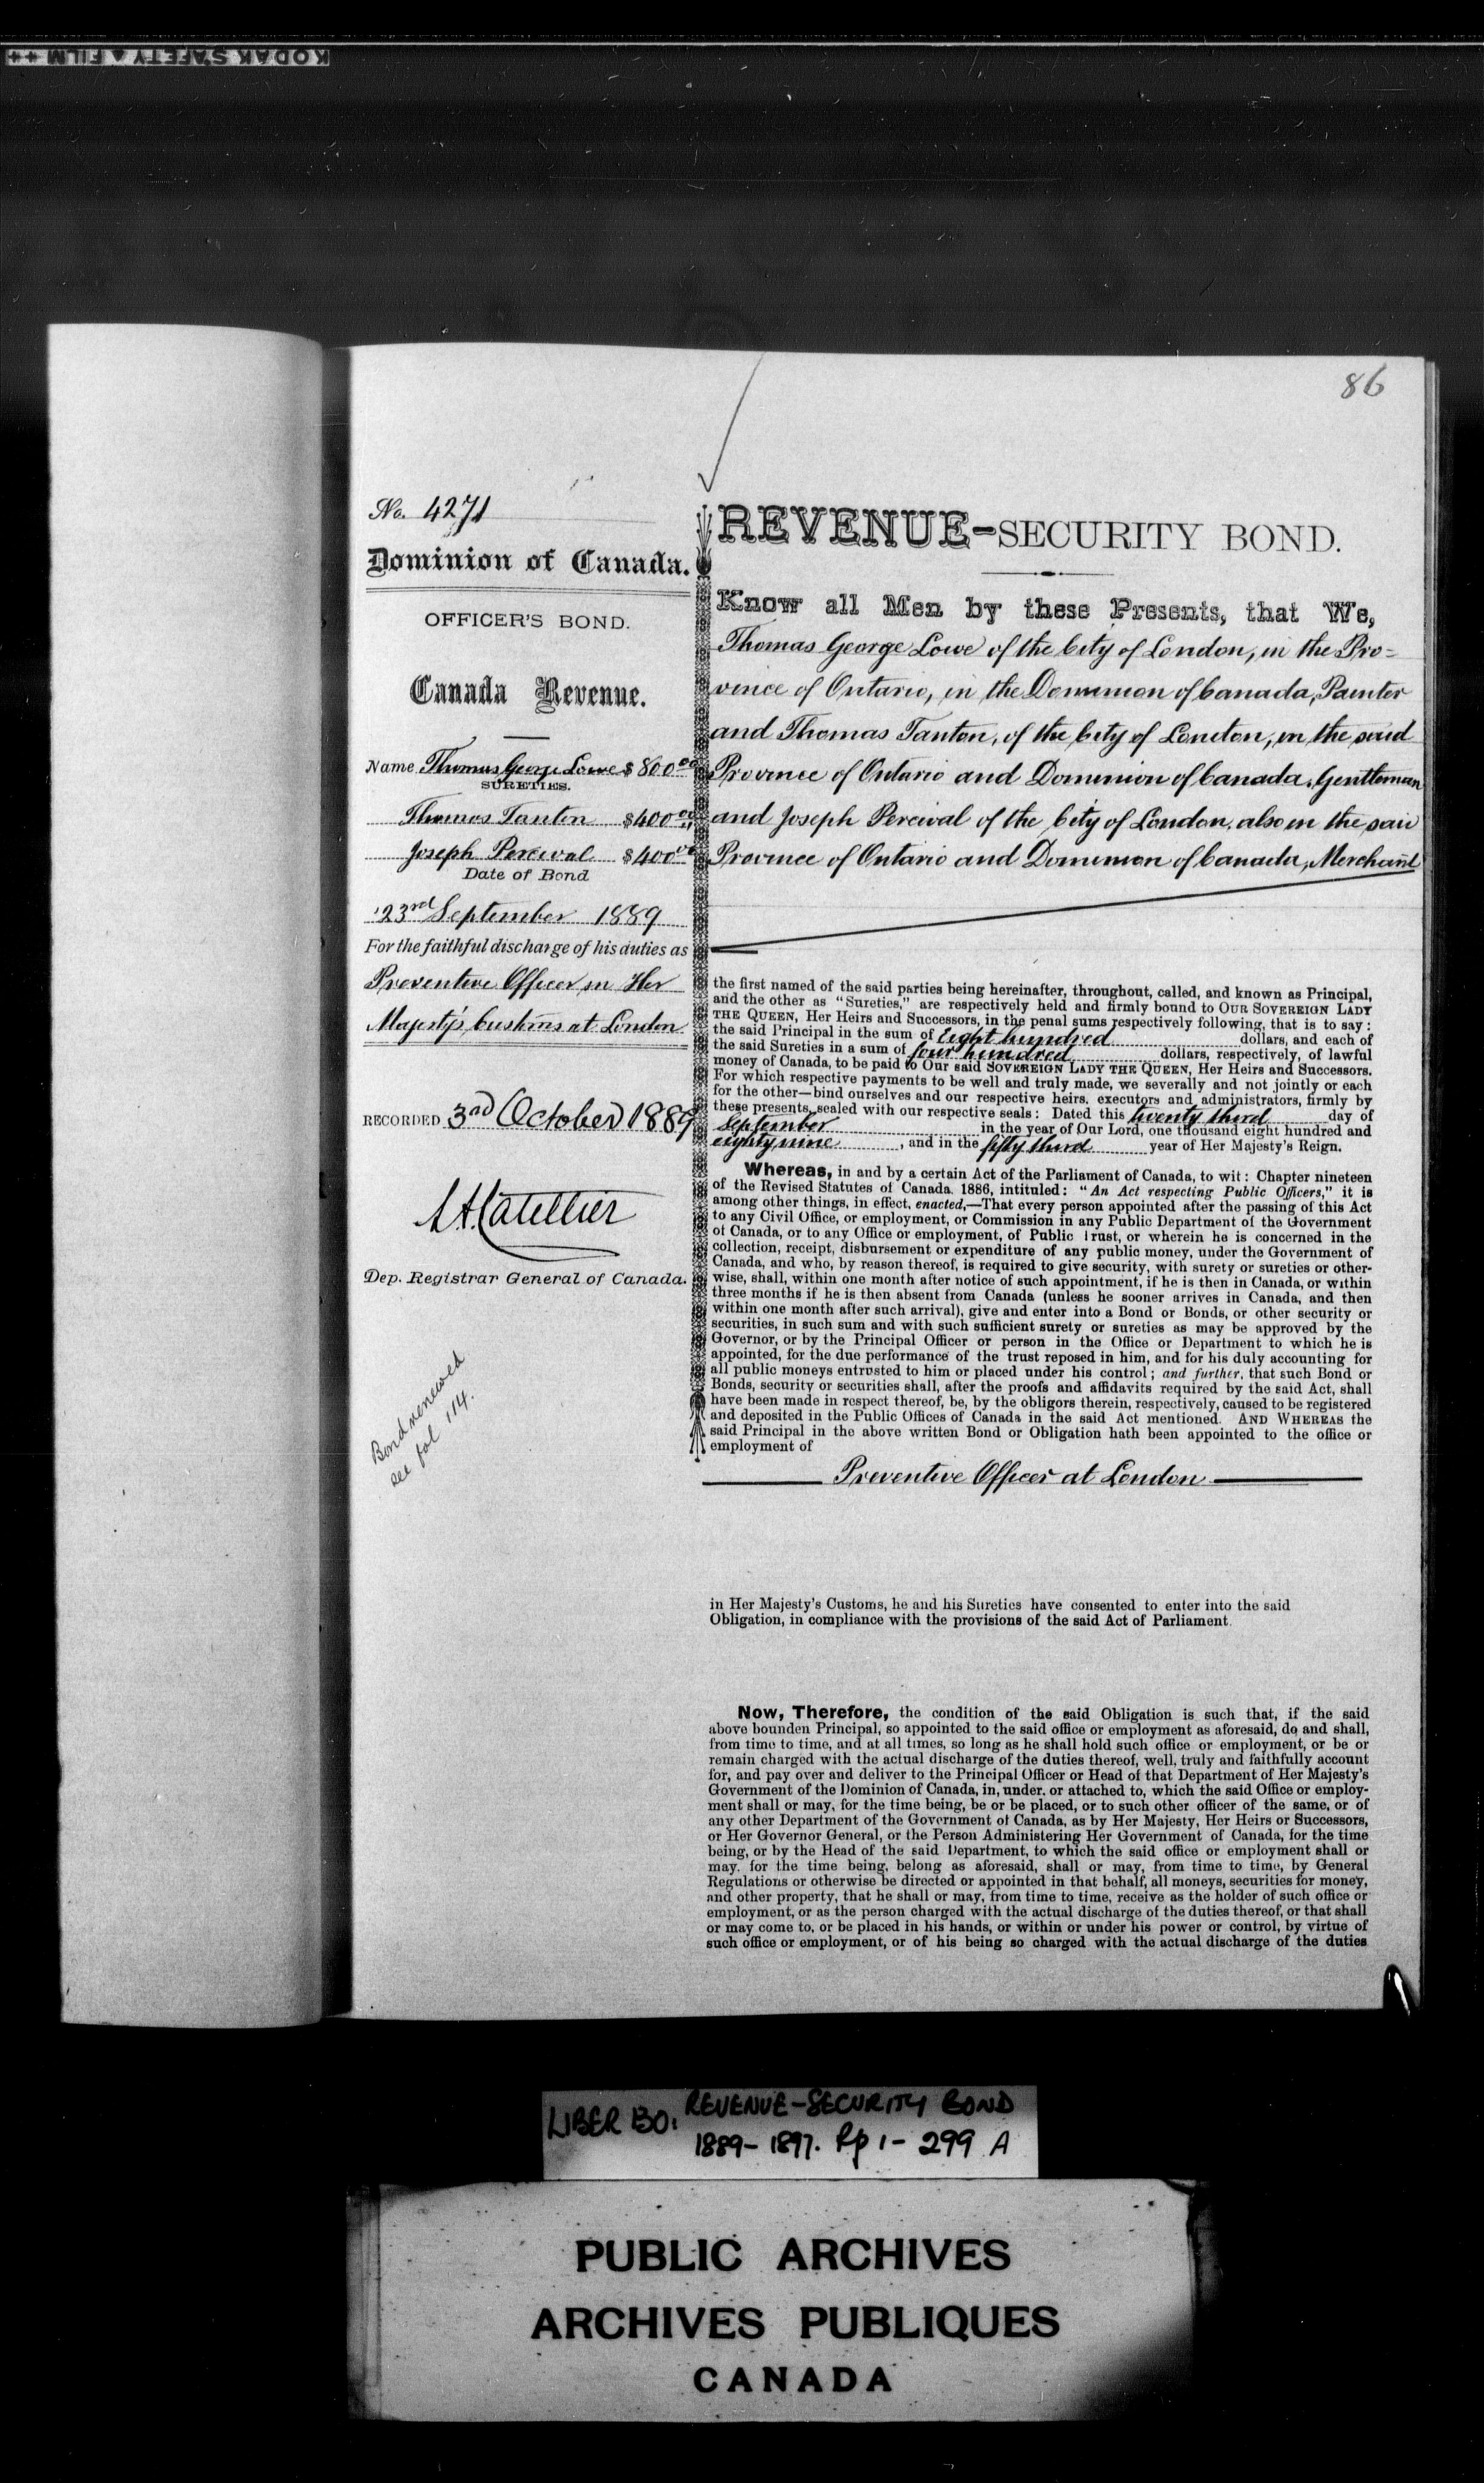 KODAK SAFETY FILM ++
86
No. 4271
Dominion of Canada.
OFFICER'S BOND.
Canada Revenue.
Name Thomas George Lowe $800.00
SURETIES.
Thomas Tanton $400.00
Joseph Percival $400.00
Date of Bond
23rd September 1889
For the faithful discharge of his duties as
Preventive Officer in Her
Majesty's Customs at London
RECORDED 3rd October 1889
L A Catellier
Dep. Registrar General of Canada.
Bond renewed
see fol 114.
REVENUE-SECURITY BOND.
Know all Men by these Presents, that We,
Thomas George Lowe of the City of London, in the Pro=
vince of Ontario, in the Dominion of Canada, Painter
and Thomas Tanton, of the City of London, in the said
Province of Ontario and Dominion of Canada, Gentleman
and Joseph Percival of the City of London, also in the said
Province of Ontario and Dominion of Canada, Merchant
the first named of the said parties being hereinafter, throughout, called, and known as Principal,
and the other as "Sureties," are respectively held and firmly bound to OUR SOVEREIGN LADY
THE QUEEN, Her Heirs and Successors, in the penal sums respectively following, that is to say:
the said Principal in the sum of Eight hundred dollars, and each of
the said Sureties in a sum of four hundred dollars, respectively, of lawful
money of Canada, to be paid to Our said SOVEREIGN LADY THE QUEEN, Her Heirs and Successors.
For which respective payments to be well and truly made, we severally and not jointly or each
for the other—bind ourselves and our respective heirs, executors and administrators, firmly by
these presents, sealed with our respective seals: Dated this twenty third day of
September in the year of Our Lord, one thousand eight hundred and
eighty nine, and in the fifty third year of Her Majesty's Reign.
Whereas, in and by a certain Act of the Parliament of Canada, to wit: Chapter nineteen
of the Revised Statutes of Canada, 1886, intituled: "An Act respecting Public Officers," it is
among other things, in effect, enacted,—That every person appointed after the passing of this Act
to any Civil Office, or employment, or Commission in any Public Department of the Government
of Canada, or to any Office or employment, of Public Trust, or wherein he is concerned in the
collection, receipt, disbursement or expenditure of any public money, under the Government of
Canada, and who, by reason thereof, is required to give security, with surety or sureties or other-
wise, shall, within one month after notice of such appointment, if he is then in Canada, or within
three months if he is then absent from Canada (unless he sooner arrives in Canada, and then
within one month after such arrival), give and enter into a Bond or Bonds, or other security or
securities, in such sum and with such sufficient surety or sureties as may be approved by the
Governor, or by the Principal Officer or person in the Office or Department to which he is
appointed, for the due performance of the trust reposed in him, and for his duly accounting for
all public moneys entrusted to him or placed under his control; and further, that such Bond or
Bonds, security or securities shall, after the proofs and affidavits required by the said Act, shall
have been made in respect thereof, be, by the obligors therein, respectively, caused to be registered
and deposited in the Public Offices of Canada in the said Act mentioned. AND WHEREAS the
said Principal in the above written Bond or Obligation hath been appointed to the office or
employment of
Preventive Officer at London
in Her Majesty's Customs, he and his Sureties have consented to enter into the said
Obligation, in compliance with the provisions of the said Act of Parliament.
Now, Therefore, the condition of the said Obligation is such that, if the said
above bounden Principal, so appointed to the said office or employment as aforesaid, do and shall,
from time to time, and at all times, so long as he shall hold such office or employment, or be or
remain charged with the actual discharge of the duties thereof, well, truly and faithfully account
for, and pay over and deliver to the Principal Officer or Head of that Department of Her Majesty's
Government of the Dominion of Canada, in, under, or attached to, which the said Office or employ-
ment shall or may, for the time being, be or be placed, or to such other officer of the same, or of
any other Department of the Government of Canada, as by Her Majesty, Her Heirs or Successors,
or Her Governor General, or the Person Administering Her Government of Canada, for the time
being, or by the Head of the said Department, to which the said office or employment shall or
may, for the time being, belong as aforesaid, shall or may, from time to time, by General
Regulations or otherwise be directed or appointed in that behalf, all moneys, securities for money,
and other property, that he shall or may, from time to time, receive as the holder of such office or
employment, or as the person charged with the actual discharge of the duties thereof, or that shall
or may come to, or be placed in his hands, or within or under his power or control, by virtue of
such office or employment, or of his being so charged with the actual discharge of the duties
LIBER BO: REVENUE-SECURITY BOND
1889-1897. Pp 1-299 A
PUBLIC ARCHIVES
ARCHIVES PUBLIQUES
CANADA